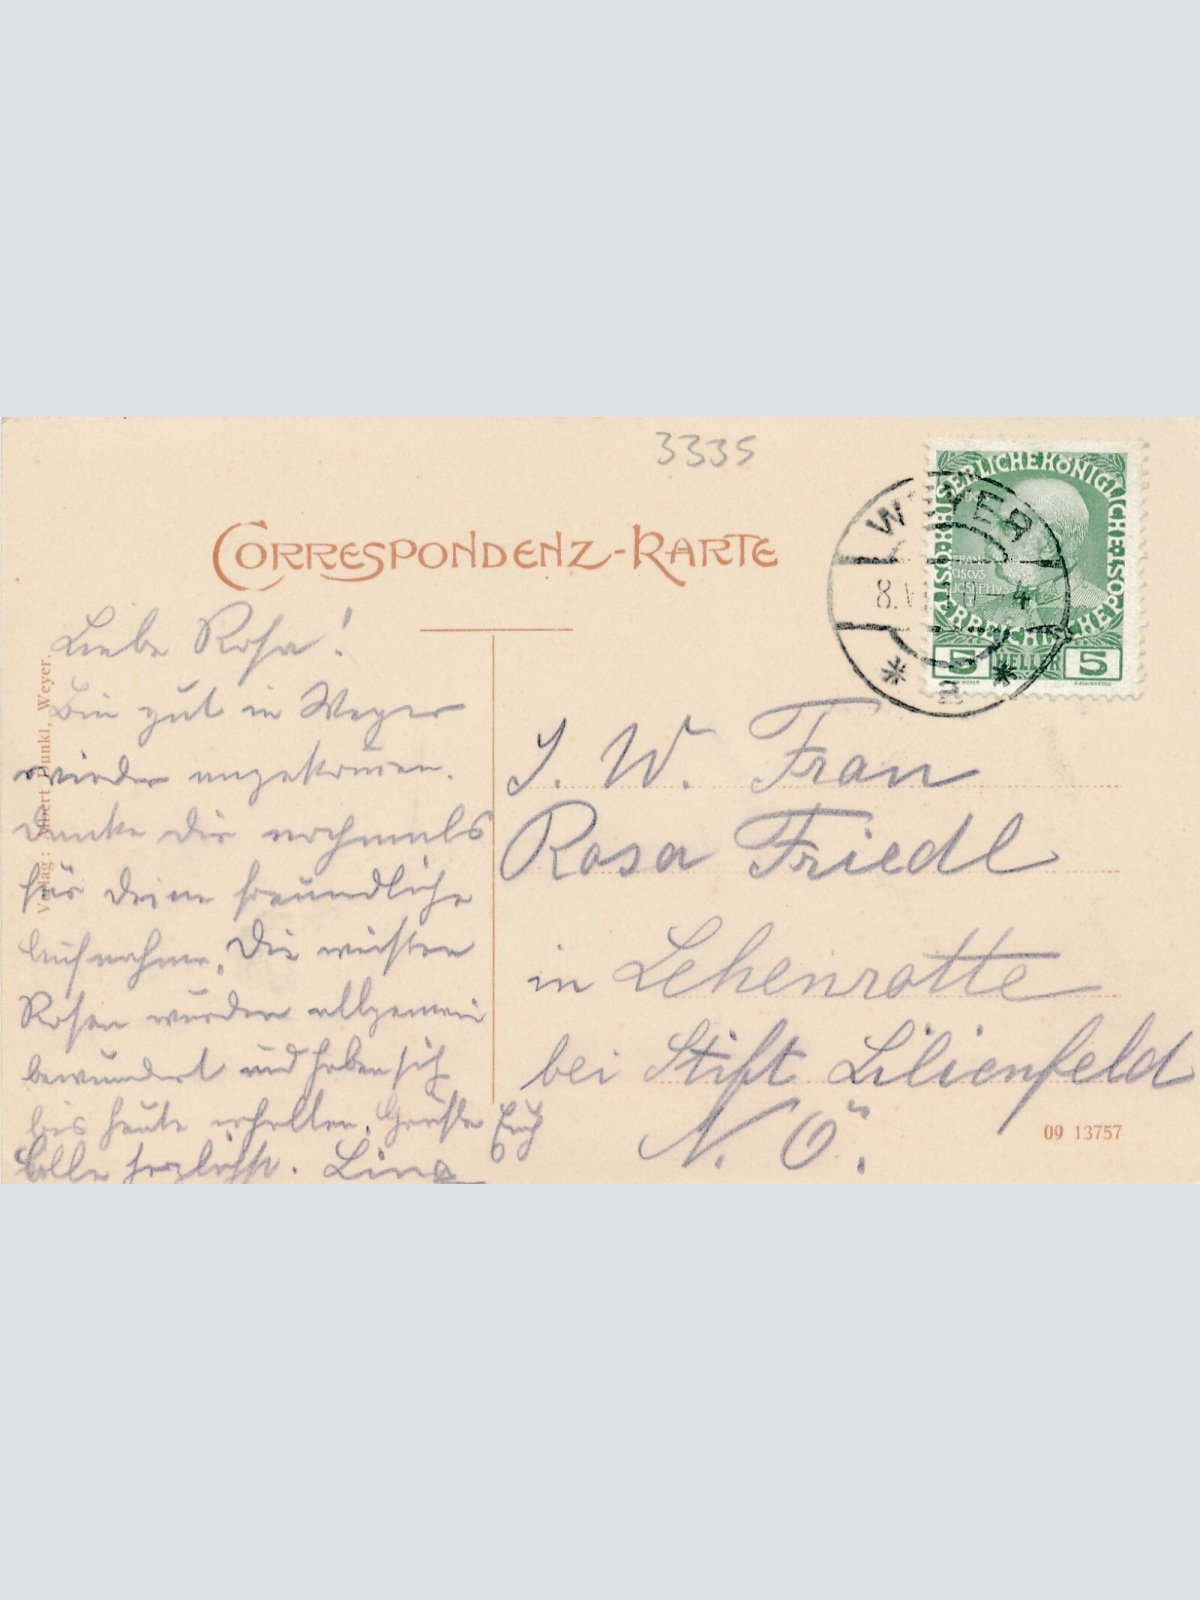 3335
CORRESPONDENZ-KARTE
KAISERLICHE KÖNIGLICHE ÖSTERREICHISCHE POST
FRANCISCUS JOSEPHUS I
5 HELLER 5
WEYER
8.V
-4
a
Liebe Rosa!
Bin gut in Weyer
wieder angekom̅en.
Danke Dir nochmals
für Deine freundliche
Aufnahme. Die
Rosen wurden allgemein
bewundert und haben sich
bis heute erhalten. Grüße Euch
Alle herzlichst. Lina
I. W. Frau
Rosa Friedl
in Lehenrotte
bei Stift Lilienfeld
N. Ö.
Verlag: Albert Dunkl, Weyer.
09 13757